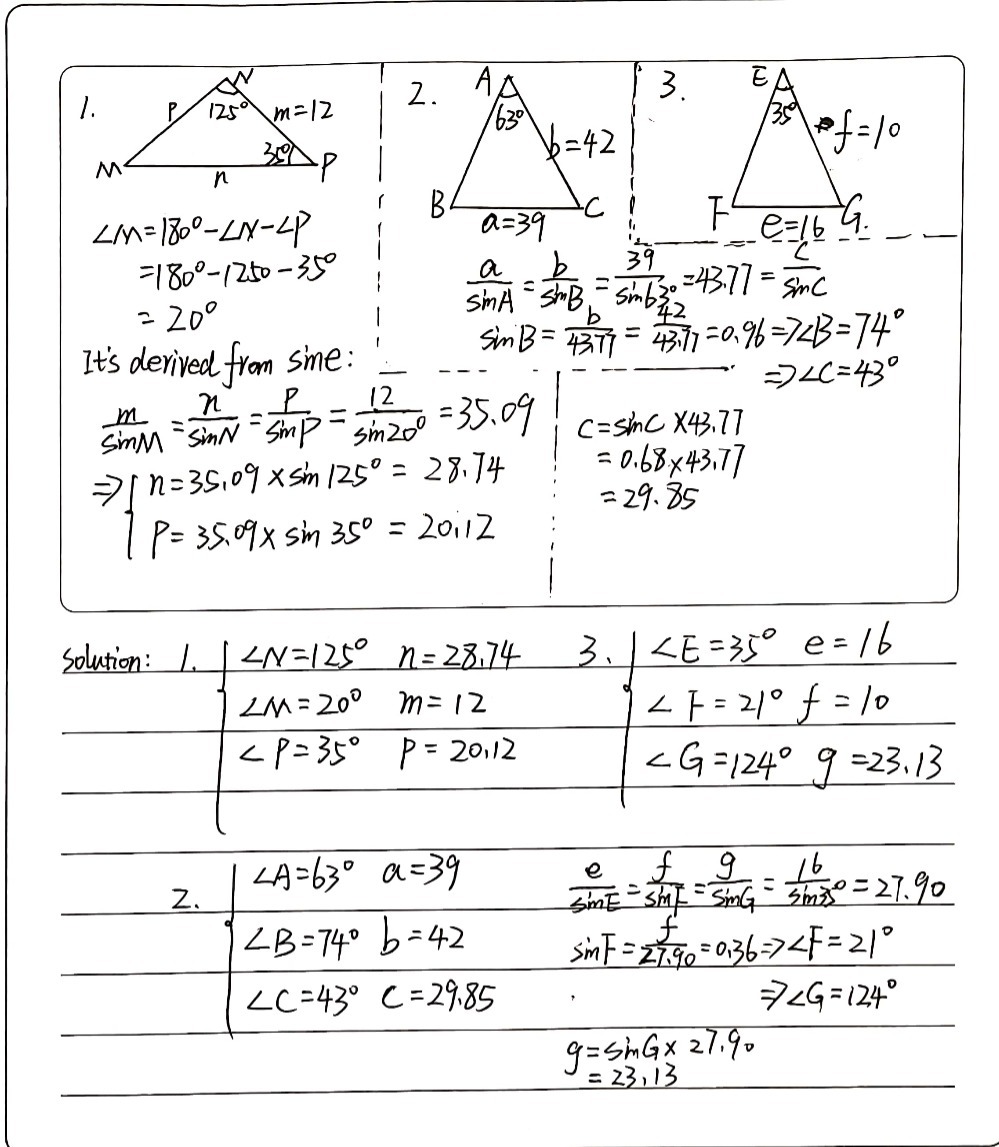 1.
N
125°
P
m=12
35°
M
n
P
∠M=180°-∠N-∠P
=180°-125°-35°
=20°
It's derived from sine:
m/sinM = n/sinN = P/sinP = 12/sin20° = 35.09
⇒ { n=35.09×sin125° = 28.74
P=35.09×sin 35° = 20.12
2.
A
63°
b=42
B
C
a=39
3.
E
35°
f=10
F
G.
e=16
a/sinA = b/sinB = 39/sin63° = 43.77 = c/sinC
sinB = b/43.77 = 42/43.77 = 0.96 ⇒ ∠B=74°
⇒ ∠C=43°
C=sinC×43.77
=0.68×43.77
=29.85
Solution: 1. { ∠N=125° n=28.74
∠M=20° m=12
∠P=35° P=20.12
3. { ∠E=35° e=16
∠F=21° f=10
∠G=124° g=23.13
2. { ∠A=63° a=39
∠B=74° b=42
∠C=43° C=29.85
e/sinE = f/sinF = g/sinG = 16/sin35° = 27.90
sinF = f/27.90 = 0.36 ⇒ ∠F=21°
⇒ ∠G=124°
g=sinG×27.90
=23.13